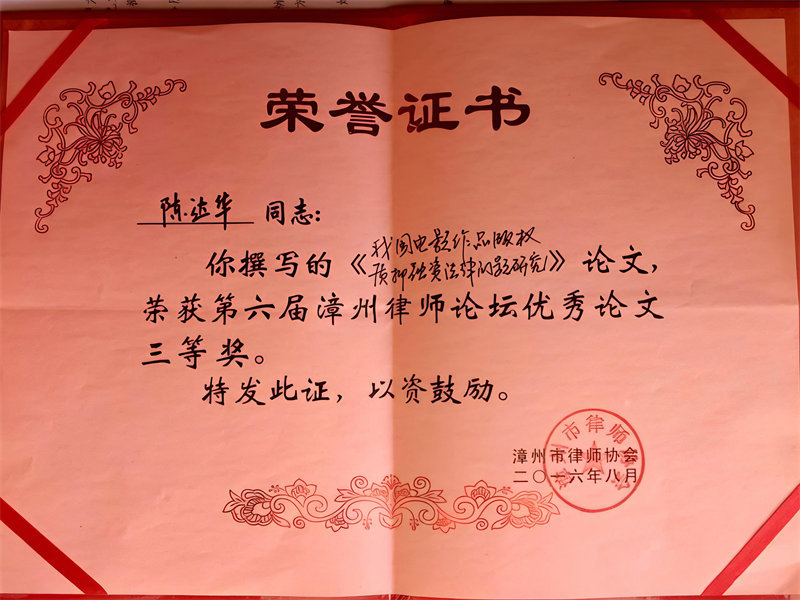 荣誉证书
陈达华 同志:
你撰写的《我国电影作品版权
质押融资法律问题研究》论文,
荣获第六届漳州律师论坛优秀论文
三等奖。
特发此证,以资鼓励。
漳州市律师协会
二〇一六年八月
漳州市律师协会